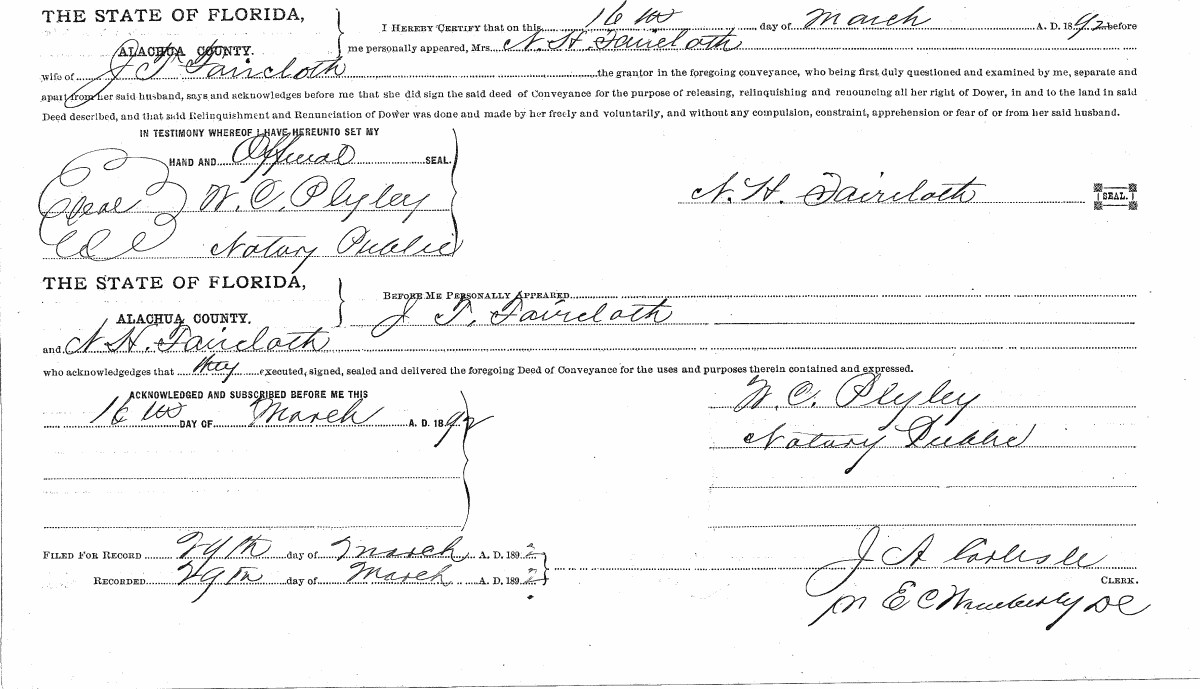 THE STATE OF FLORIDA,
ALACHUA COUNTY.
I HEREBY CERTIFY that on this 16th day of March A. D. 1892 before
me personally appeared, Mrs. N. H. Faircloth
wife of J T Faircloth the grantor in the foregoing conveyance, who being first duly questioned and examined by me, separate and
apart from her said husband, says and acknowledges before me that she did sign the said deed of Conveyance for the purpose of releasing, relinquishing and renouncing all her right of Dower, in and to the land in said
Deed described, and that said Relinquishment and Renunciation of Dower was done and made by her freely and voluntarily, and without any compulsion, constraint, apprehension or fear of or from her said husband.
IN TESTIMONY WHEREOF I HAVE HEREUNTO SET MY
HAND AND Official SEAL.
Seal W. C. Plyley
N. H. Faircloth [SEAL.]
Notary Public
THE STATE OF FLORIDA,
ALACHUA COUNTY.
BEFORE ME PERSONALLY APPEARED
J T. Faircloth
and N. H. Faircloth
who acknowledgedges that they executed, signed, sealed and delivered the foregoing Deed of Conveyance for the uses and purposes therein contained and expressed.
ACKNOWLEDGED AND SUBSCRIBED BEFORE ME THIS
16th DAY OF March A. D. 1892
W. C. Plyley
Notary Public
FILED FOR RECORD 29th day of March A. D. 1892
RECORDED 29th day of March A. D. 1892
J A Carlisle
CLERK.
E C Wimberly DC